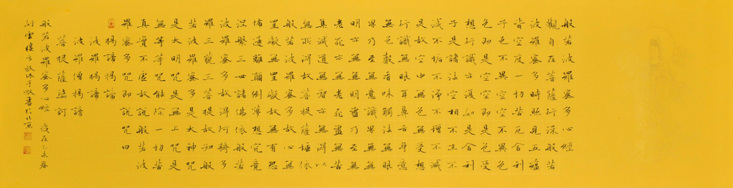 般若波羅蜜多心經
觀自在菩薩行深般若
波羅蜜多時照見五蘊
皆空度一切苦厄舍利
子色不異空空不異色
色即是空空即是色受
想行識亦復如是舍利
子是諸法空相不生不
滅不垢不淨不增不減
是故空中無色無受想
行識無眼耳鼻舌身意
無色聲香味觸法無眼
界乃至無意識界無無
明亦無無明盡乃至無
老死亦無老死盡無苦
集滅道無智亦無得以
無所得故菩提薩埵依
般若波羅蜜多故心無
罣礙無罣礙故無有恐
怖遠離顛倒夢想究竟
涅槃三世諸佛依般若
波羅蜜多故得阿耨多
羅三藐三菩提故知般
若波羅蜜多是大神咒
是大明咒是無上咒是
無等等咒能除一切苦
真實不虛故說般若波
羅蜜多咒即說咒曰
揭諦揭諦
波羅揭諦
波羅僧揭諦
菩提薩婆訶
般若波羅蜜多心經 歲在